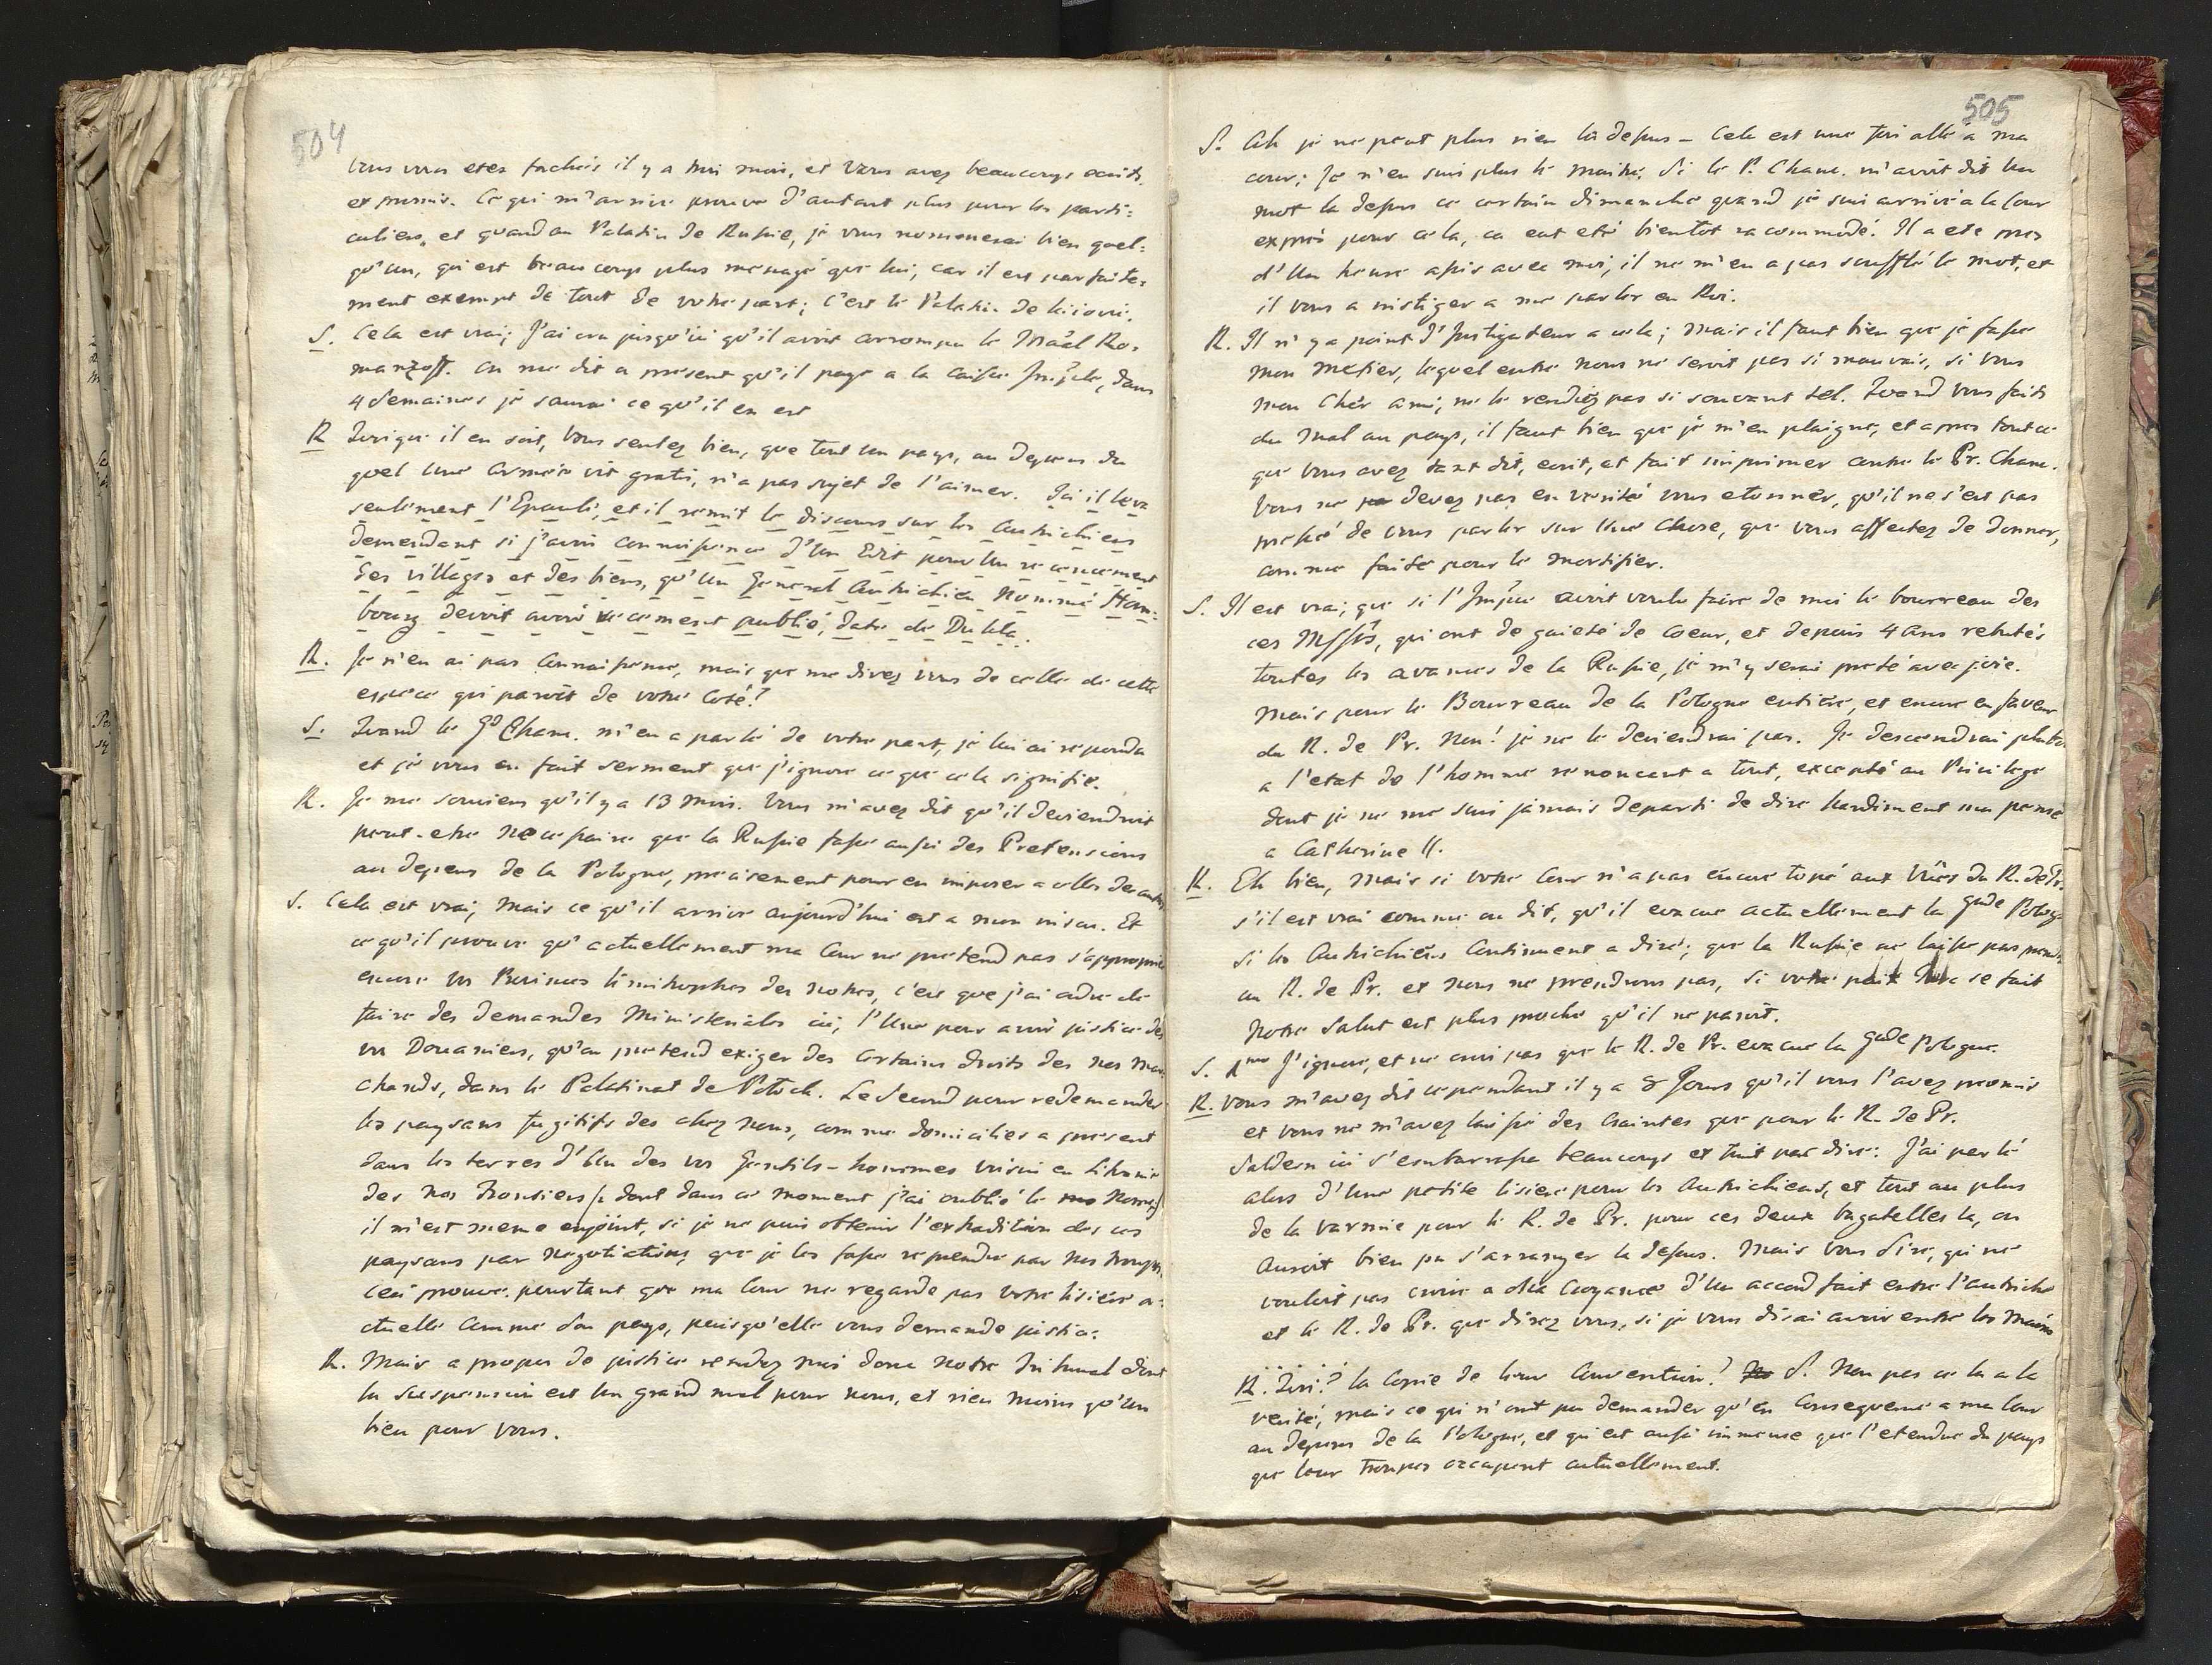 504
vous vous etes fachés il y a trois mois, et vous avez beaucoup ecrits
et promis. Ce qui m'arrive prouve d'autant plus pour les parti=
culiers, et quand au Palatin de Russie, je vous nommerai bien quel=
qu'un, qui est beaucoup plus menagé que lui, car il est parfaite=
ment exempt de tout de votre part; c'est le Palatin de Kiiovie.
S. Cela est vrai; J'ai cru jusqu'ici qu'il avoit corrompu le Maäl Ro=
manzoff. on me dit a present qu'il paye a la caisse Imp̃le, dans
4 semaines je saurai ce qu'il en est
R Quoique il en soit, vous sentez bien, que tout un pays, au depens du
quel une Armée vit gratis, n'a pas sujet de l'aimer. Ici il leva
seulement l'Epaule, et il remit le discours sur les Autrichiens
demendant si j'avoi connoissence d'un Edit pour un recencement
des villages et des biens, qu'un General Autrichien nommé Ham=
bourg devoit avoir recement publié, daté de Dukla.
R. Je n'en ai pas connoissence, mais que me direz vous de celle de cette
espece qui paroit de votre coté?
S. Quand le Gd Chanc. m'en a parlé de votre part, je lui ai repondu
et je vous en fait serment que j'ignore ce que cela signifie.
R. Je me souviens qu'il y a 13 mois. Vous m'avez dit qu'il deviendroit
peut-etre necessaire que la Russie fasse aussi des Pretensions
au depens de la Pologne, precisement pour en imposer a celles des autres
S. Cela est vrai, mais ce qu'il arrive aujourd'hui est a mon insçu. Et
ce qu'il prouve qu'actuellement ma Cour ne pretend pas s'approprier
encore vos Provinces limitrophes des notres, c'est que j'ai ordre de
faire des demandes Ministeriales ici, l'Une pour avoir justice des
vos Douaniers, qu'on pretend exiger des certains droits des nos mar
chands, dans le Palatinat de Potock. Le second pour redemander
les paysans fugitifs des chez nous, comme domiciliés a present
dans les terres d'un des vos Gentils-hommes voisin en Lithuanie
des nos Frontiers /: dont dans ce moment j'ai oublié le nom :/
il m'est meme enjoint, si je ne puis obtenir l'extradition des ces
paysans par negotiations, que je les fasse reprendre par nos troupes.
Ceci prouve pourtant que ma Cour ne regarde pas votre lisière a=
ctuelle comme son pays, puisqu'elle vous demande justice.
R. Mais a propos de justice rendez moi donc notre Tribunal dont
la suspension est un grand mal pour nous, et rien moins qu'un
bien pour vous.
505
S. Ah je ne peut plus rien là dessus - Cela est une fois allé a ma
cour; Je n'en suis plus le maitre. Si le P. Chanc. m'avoit dit un
mot la dessus ce certain dimanche quand je suis arrivé a la Cour
exprés pour cela, ca eut eté bientot racommodé. Il a eté pres
d'un heure assis avec moi, il ne m'en a pas soufflé le mot, et
il vous a instiger a me parler en Roi.
R. Il n'y a point d'Instigateur a cela; mais il faut bien que je fasse
mon metier, lequel entre nous ne seroit pas si mauvais, si vous
mon Cher ami, ne le rendiez pas si souvant tel. Quand vous faits
du mal au pays, il faut bien que je m'en plaigne, et apres tout ce
que vous avez tant dit, ecrit, et fait imprimer contre le Pr. Chanc.
vous ne devez pas en verité vous etonner, qu'il ne s'est pas
pressé de vous parler sur une chose, que vous affectez de donner,
comme faite pour le mortifier.
S. Il est vrai; que si l'Imp̃ce avoit voulu faire de moi le bourreau des
ces Messrs, qui ont de gaieté de coeur, et depuis 4 ans rebutés
toutes les avances de la Russie, je m'y serai preté avec joie.
Mais pour le Bourreau de la Pologne entière, et encore en faveur
du R. de Pr. Non! je ne le deviendrai pas. Je descendrai plutot
a l'etat de l'homme renoncent a tout, excepté au Privilege
dont je ne me suis jamais departi de dire hardiment ma pensé
a Catherine II.
R. Eh bien, mais si votre Cour n'a pas encore topé aux Vües du R. de Pr.
s'il est vrai comme on dit, qu'il evacue actuellement la gnde Polog.
si les Autrichiens continuent a dire; que la Russie ne laisse pas prendre
au R. de Pr. et nous ne prendrons pas, si votre paix Turc se fait
Notre salut est plus proche qu'il ne paroit.
S. 1mo J'ignore, et ne croi pas que le R. de Pr. evacue la gnde Pologne.
R. Vous m'avez dit cependant il y a 8 Jours qu'il vous l'avez promis
et vous ne m'avez laissé des craintes que pour le R. de Pr.
Saldern ici s'embarrassa beaucoup et finit par dire: J'ai parlé
alors d'une petite lisiere pour les Autrichiens, et tout au plus
de la varmie pour le R. de Pr. pour ces deux bagatelles la, on
Auroit bien pu s'arranger la dessus. Mais vous Sire, qui ne
vouloit pas croire a ma croyance d'un accord fait entre l'autriche
et le R. de Pr. que direz vous, si je vous dirai avoir entre les mains
R. Quoi? la Copie de leur Convention? S. Non pas cela a la
verité, mais ce qui n'ont pu demander qu'en consequence a ma Cour
au depens de la Pologne, et qui est aussi immense que l'etendue du pays
que leur Troupes occupent actuellement.